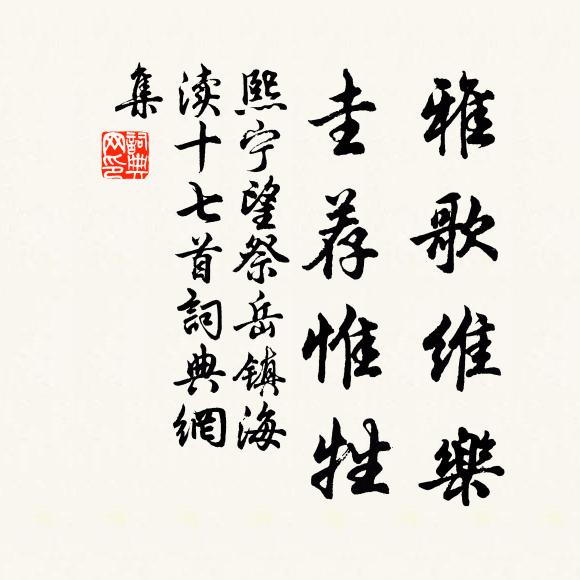 雅歌维樂
圭荐惟牲
熙宁望祭岳镇海
渎十七首詞典網
集
詞典
网印